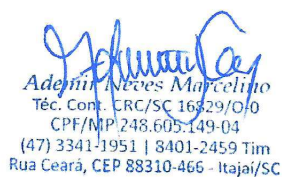 Ademir Neves Marcelino
Téc. Cont. CRC/SC 16829/O-0
CPF/MP 248.605.149-04
(47) 3341-1951 | 8401-2459 Tim
Rua Ceará, CEP 88310-466 - Itajaí/SC